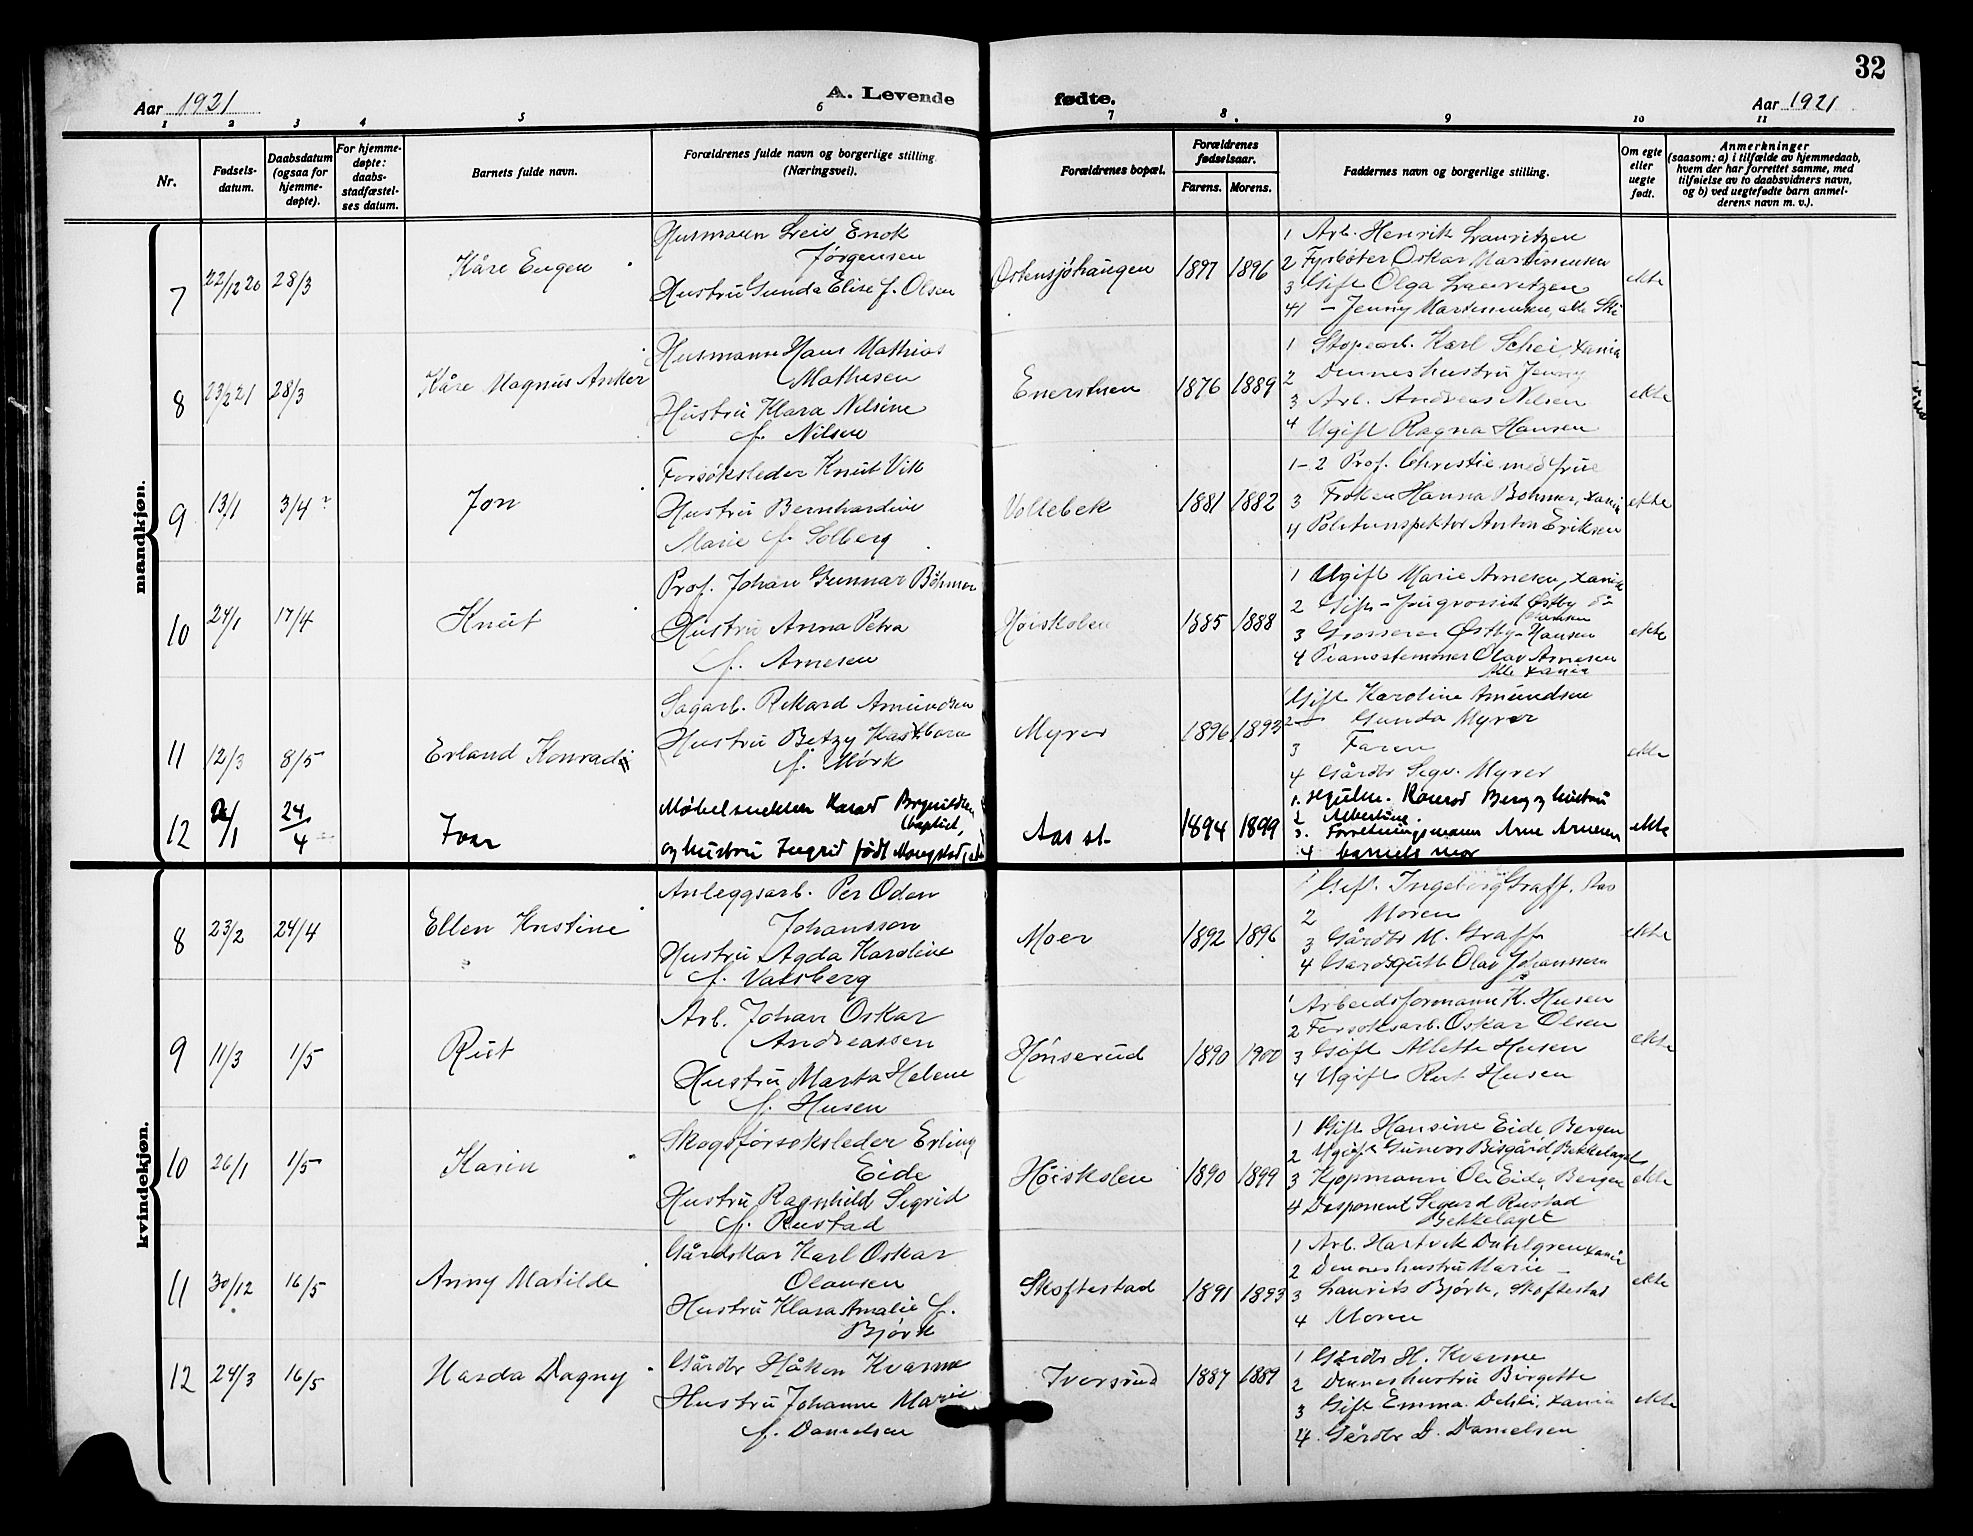 32
Aar 1921
A. Levende fødte.
Aar 1921
1 2 3 4 5 6 7 8. 9 10 11
Nr.
Fødsels-
datum.
Daabsdatum
(ogsaa for
hjemme-
døpte).
For hjemme-
døpte:
daabs-
stadfæstel-
ses datum.
Barnets fulde navn.
Forældrenes fulde navn og borgerlige stilling.
(Næringsvei).
Forældrenes bopæl.
Forældrenes
fødselsaar.
Farens. Morens.
Faddernes navn og borgerlige stilling.
Om egte
eller
uegte
født.
Anmerkninger
(saasom: a) i tilfælde av hjemmedaab,
hvem der har forrettet samme, med
tilføielse av to daabsvidners navn,
og b) ved uegtefødte barn anmel-
derens navn m. v.).
mandkjøn.
7 22/12 20 28/3 Kåre Eugen
Husmann Leiv Enok
Jørgensen
Hustru Gunda Elise f. Olsen
Østensjøhaugen 1897 1896
1 Arb. Henrik Lauritzen
2 Fyrbøter Oskar Martinsen
3 Gift Olga Lauritzen
4 — Jenny Martinsen, alle Ski
ekte
8 23/2 21 28/3 Kåre Magnus Anker
Husmann Hans Mathias
Mathisen
Hustru Klara Nilsine
f. Nilsen
Enerstuen 1876 1889
1 Stopearb. Karl Schei, Xania
2 Denneshustru Jenny
3 Arb. Andreas Nilsen
4 Ugift Ragna Hansen
ekte
9 13/1 3/4 Jon
Forsøksleder Knut Vik
Hustru Bernhardine
Marie f. Solberg
Vollebek 1881 1882
1-2 Prof. Christie med frue
3 Frøken Hanna Bohmer, Xania
4 Politiinspektør Anton Eriksen
ekte
10 24/1 17/4 Knut
Prof. Johan Gunnar Böhmer
Hustru Anna Petra
f. Arnesen
Høiskolen 1885 1888
1 Ugift Marie Arnesen, Xania
2 Gift Østby
Hansen
3 Grosserer Østby-Hansen
4 Pianostemmer Olav Arnesen
Alle Xania
ekte
11 12/3 8/5 Erland Konrad
Sagarb. Rikard Amundsen
Hustru Betzy
f. Mørk
Myrer 1896 1893
1 Gift Karoline Amundsen
2 — Gunda Myrer
3 Faren
4 Gårdbr Sigv. Myrer
ekte
12 /1 24/4 Ivar
Møbelsnekker Brynildsen
(baptist,
og hustru Ingrid født Mongstad
Aas st. 1894 1899
1. Konrad Berg og hustru
2 Albertine.
3. Forretningsmann Arne Arnesen
4 barnets mor
ekte
kvindekjøn.
8 23/2 24/4 Ellen Kristine
Anleggsarb. Per Oden
Johansson
Hustru Agda Karoline
f. Vatsberg
Moer 1892 1896
1 Gift. Ingeborg Graff. Aas
2 Moren
3 Gårdbr M. Graff
4 Gardsgutt Olav Johanssen
ekte
9 11/3 1/5 Rut
Arb. Johan Oskar
Andreassen
Hustru Marta Helene
f. Husen
Hønserud 1890 1900
1 Arbeidsformann K. Husen
2 Forsøksarb. Oskar Olsen
3 Gift Allette Husen
4 Ugift Rut Husen
ekte
10 26/1 1/5 Karin
Skogsforsøksleder Erling
Eide
Hustru Ragnhild Sigrid
f. Rustad
Høiskolen 1890 1899
1 Gift Hansine Eide Bergen
2 Ugift Gunvor Bisgård, Bekkelaget
3 Kjøpmann Ole Eide, Bergen
4 Disponent Sigurd Rustad
Bekkelaget
ekte
11 30/12 16/5 Anny Matilde
Gårdskar Karl Oskar
Olausen
Hustru Klara Amalie f.
Bjørk
Skoftestad 1891 1893
1 Arb. Hartvik Dahlgren Xania
2 Denneshustru Marie —
3 Laurits Bjørk, Skoftestad
4 Moren
ekte
12 24/3 16/5 Harda Dagny
Gårdbr Håkon Kvarme
Hustru Johanne Marie
f. Danielsen
Iversrud 1887 1889
1 Gårdbr H. Kvarme
2 Denneshustru Birgette
3 Gift Emma Dehli, Xania
4. Gårdbr D. Danielsen
ekte